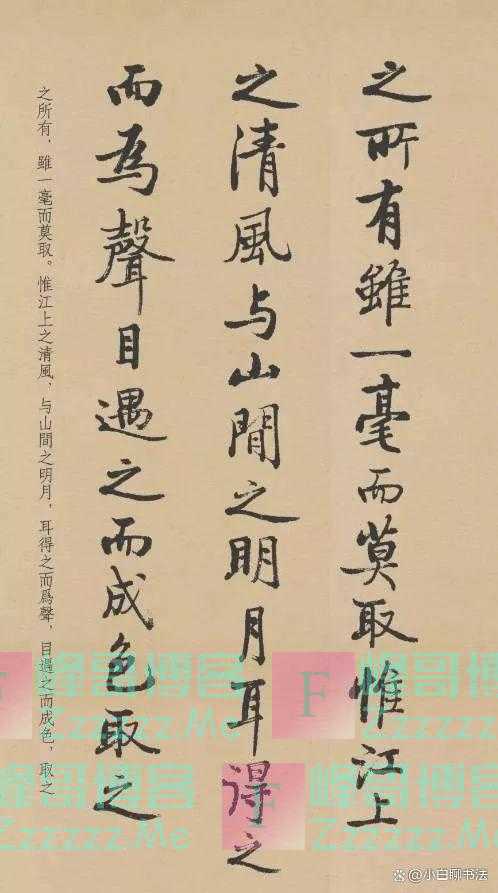 之所有雖一毫而莫取惟江上
之清風与山間之明月耳得之
而為聲目遇之而成色取之
之所有，雖一毫而莫取。惟江上之清風，与山間之明月，耳得之而爲聲，目遇之而成色，取之
F 峰哥博客
Zzzzzz.Me
F 峰哥博客
Zzzzzz.Me
@小白聊书法